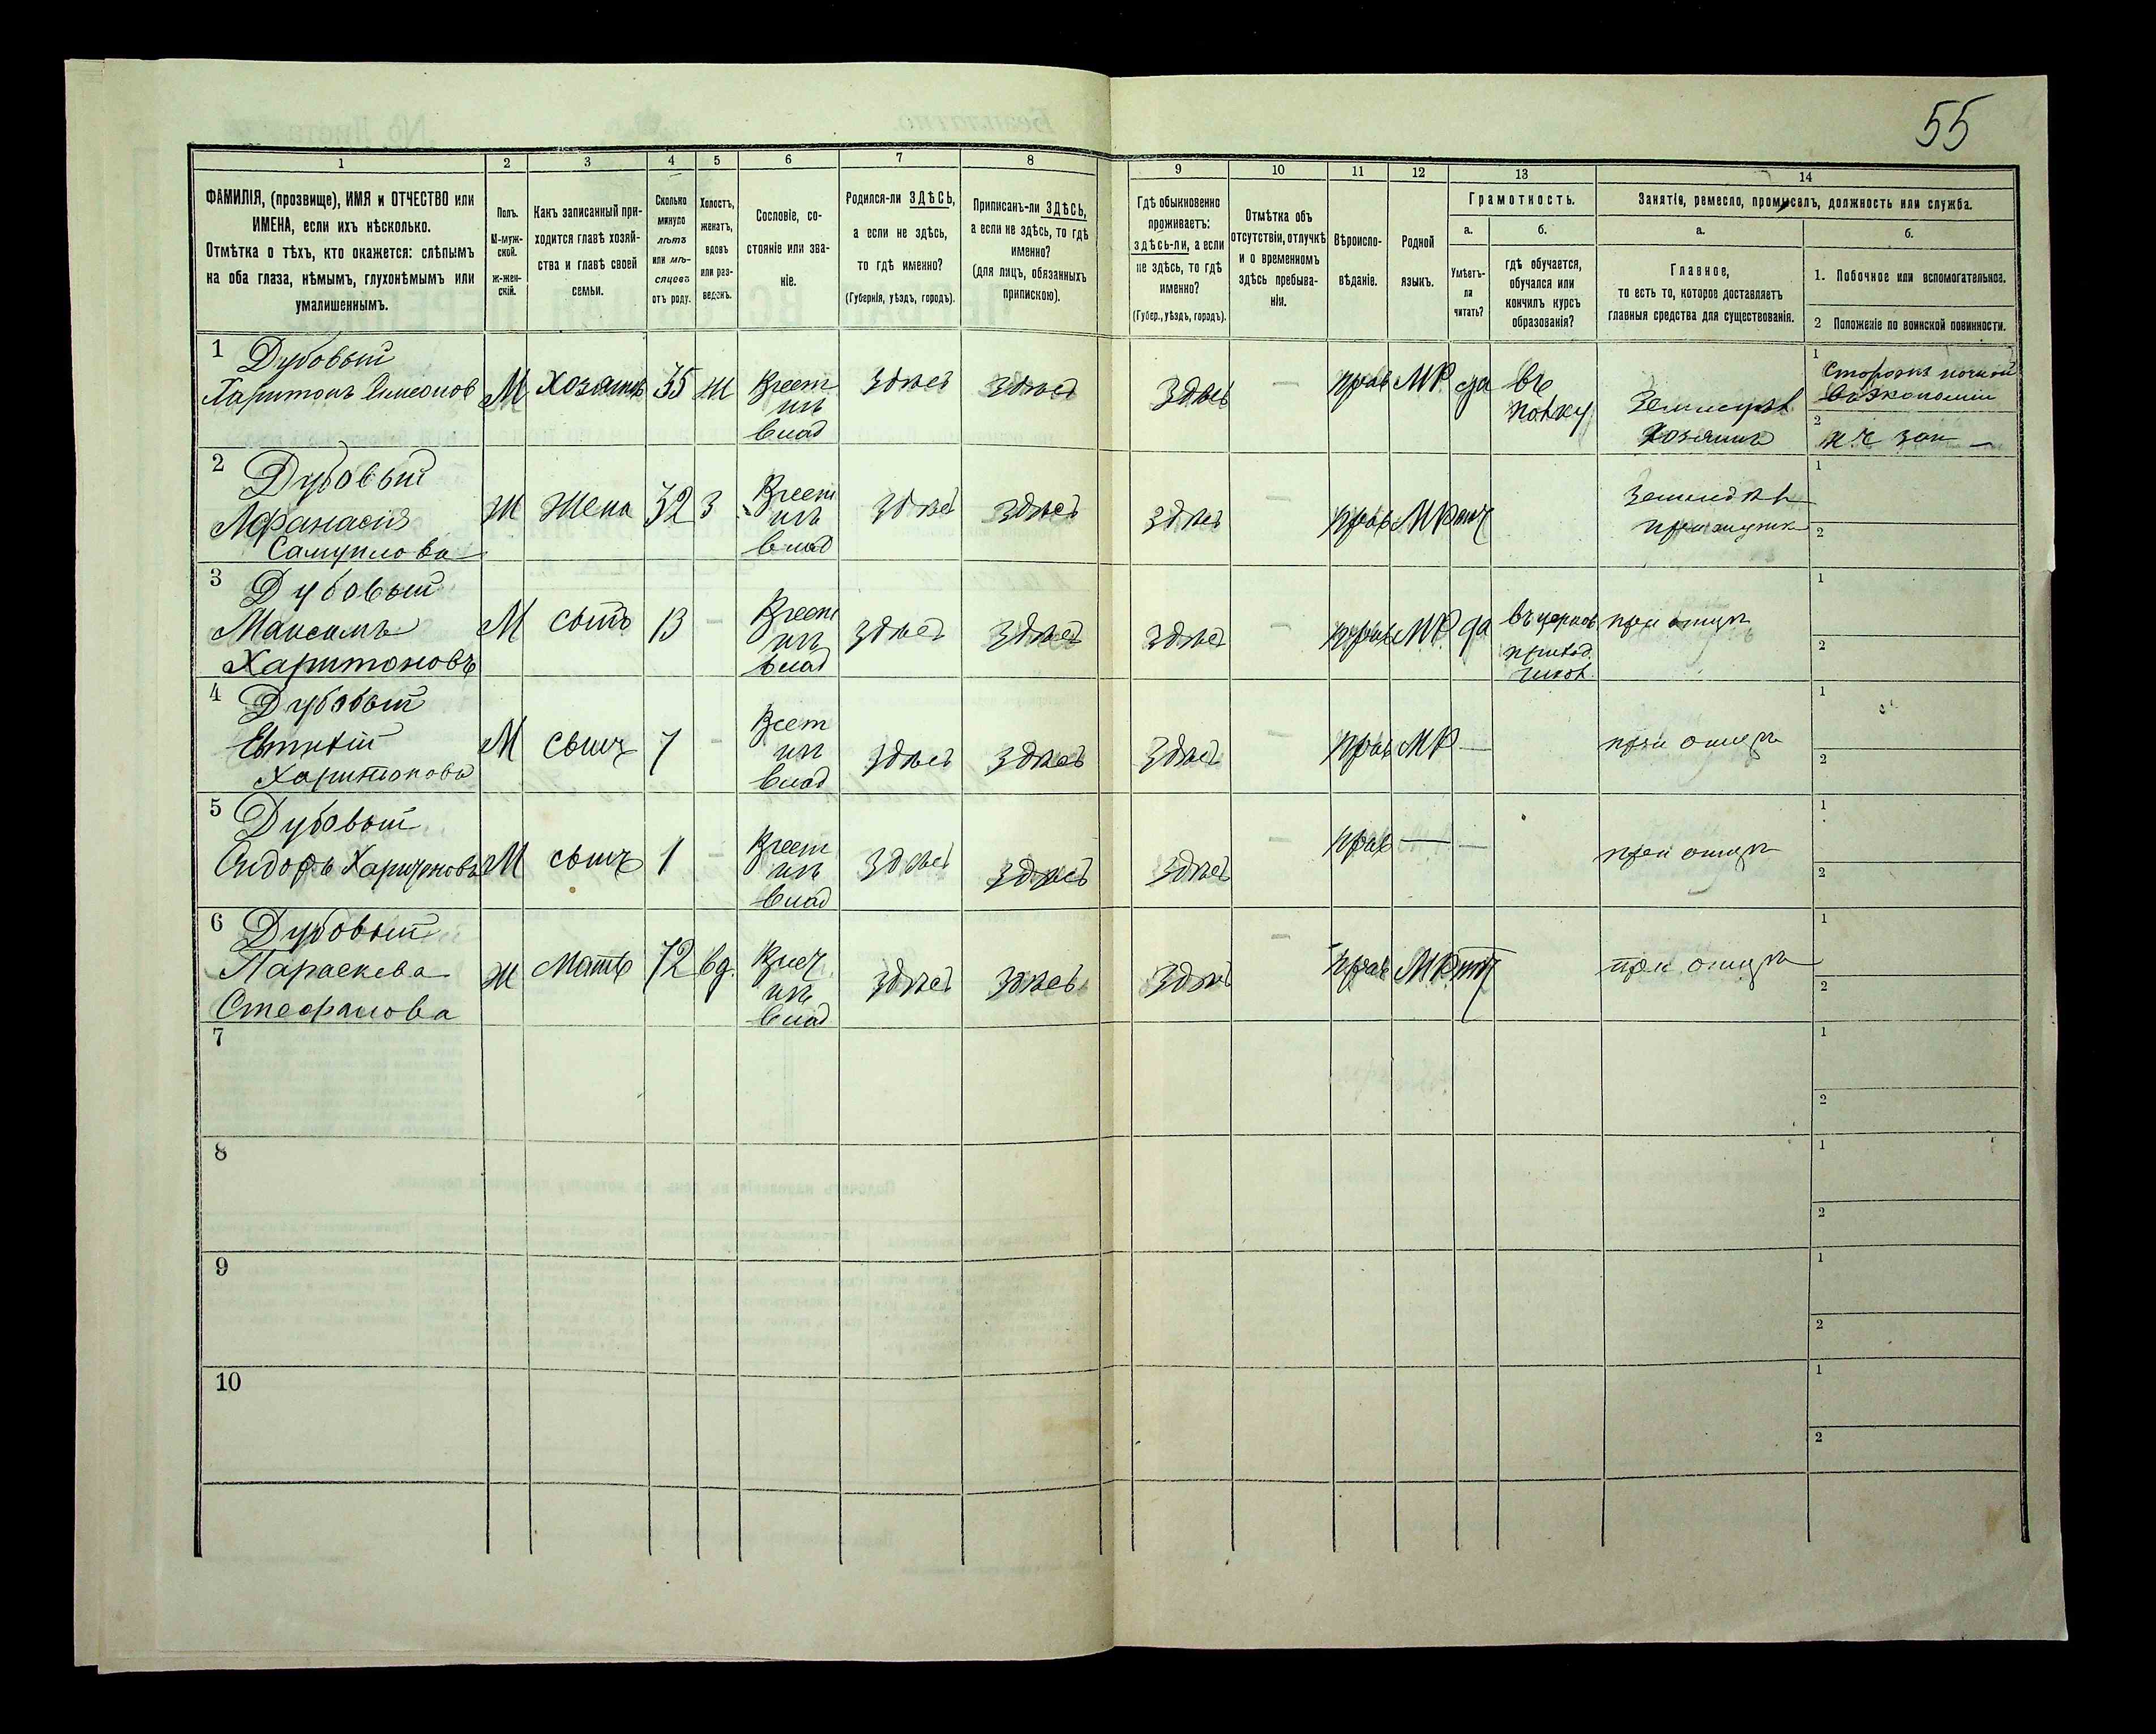 55
1
2
3
4
5
6
7
8
9
10
11
12
13
14
ФАМИЛІЯ, (прозвище), ИМЯ и ОТЧЕСТВО или
ИМЕНА, если ихъ нѣсколько.
Отмѣтка о тѣхъ, кто окажется: слѣпымъ
на оба глаза, нѣмымъ, глухонѣмымъ или
умалишеннымъ.
Полъ.
М-муж-
ской.
ж-жен-
скій.
Какъ записанный при-
ходится главѣ хозяй-
ства и главѣ своей
семьи.
Сколько
минуло
лѣтъ
или мѣ-
сяцевъ
отъ роду.
Холостъ,
женатъ,
вдовъ
или раз-
веденъ.
Сословіе, со-
стояніе или зва-
ніе.
Родился-ли ЗДѢСЬ,
а если не здѣсь,
то гдѣ именно?
(Губернія, уѣздъ, городъ).
Приписанъ-ли ЗДѢСЬ,
а если не здѣсь, то гдѣ
именно?
(для лицъ, обязанныхъ
припискою).
Гдѣ обыкновенно
проживаетъ:
здѣсь-ли, а если
не здѣсь, то гдѣ
именно?
(Губер., уѣздъ, городъ).
Отмѣтка объ
отсутствіи, отлучкѣ
и о временномъ
здѣсь пребыва-
ніи.
Вѣроиспо-
вѣданіе.
Родной
языкъ.
Грамотность.
а.
Умѣетъ-
ли
читать?
б.
гдѣ обучается,
обучался или
кончилъ курсъ
образованія?
Занятія, ремесло, промыселъ, должность или служба.
а.
Главное,
то есть то, которое доставляетъ
главныя средства для существованія.
б.
1. Побочное или вспомогательное.
2 Положеніе по воинской повинности.
1 Дубовый
Харитонъ Симеонов
М
Хозяинъ
35
ж
Крест
изъ
влад
здѣсь
здѣсь
здѣсь
—
прав
МР
да
въ
полку
Хозяинъ
1
Сторожъ ночной
в экономіи
2
2 Дубовый
Афанасія
Самуилова
Ж
Жена
32
З
Крест
изъ
влад
здѣсь
здѣсь
здѣсь
—
прав
МР
1
2
3 Дубовый
Максимъ
Харитоновъ
М
сынъ
13
—
Крест
изъ
влад
здѣсь
здѣсь
здѣсь
—
прав
МР
да
въ церков
приход.
школ.
при отцѣ
1
2
4 Дубовый
Евтихій
Харитонова
М
сынъ
7
—
Крест
изъ
влад
здѣсь
здѣсь
здѣсь
—
прав
МР
—
при отцѣ
1
2
5 Дубовый
Сидоръ Харитоновъ
М
сынъ
1
—
Крест
изъ
влад
здѣсь
здѣсь
здѣсь
—
прав
—
—
при отцѣ
1
2
6 Дубовый
Параскева
Стефанова
Ж
мать
72
вд.
изъ
влад
здѣсь
здѣсь
здѣсь
—
прав
МР
1
2
7
1
2
8
1
2
9
1
2
10
1
2